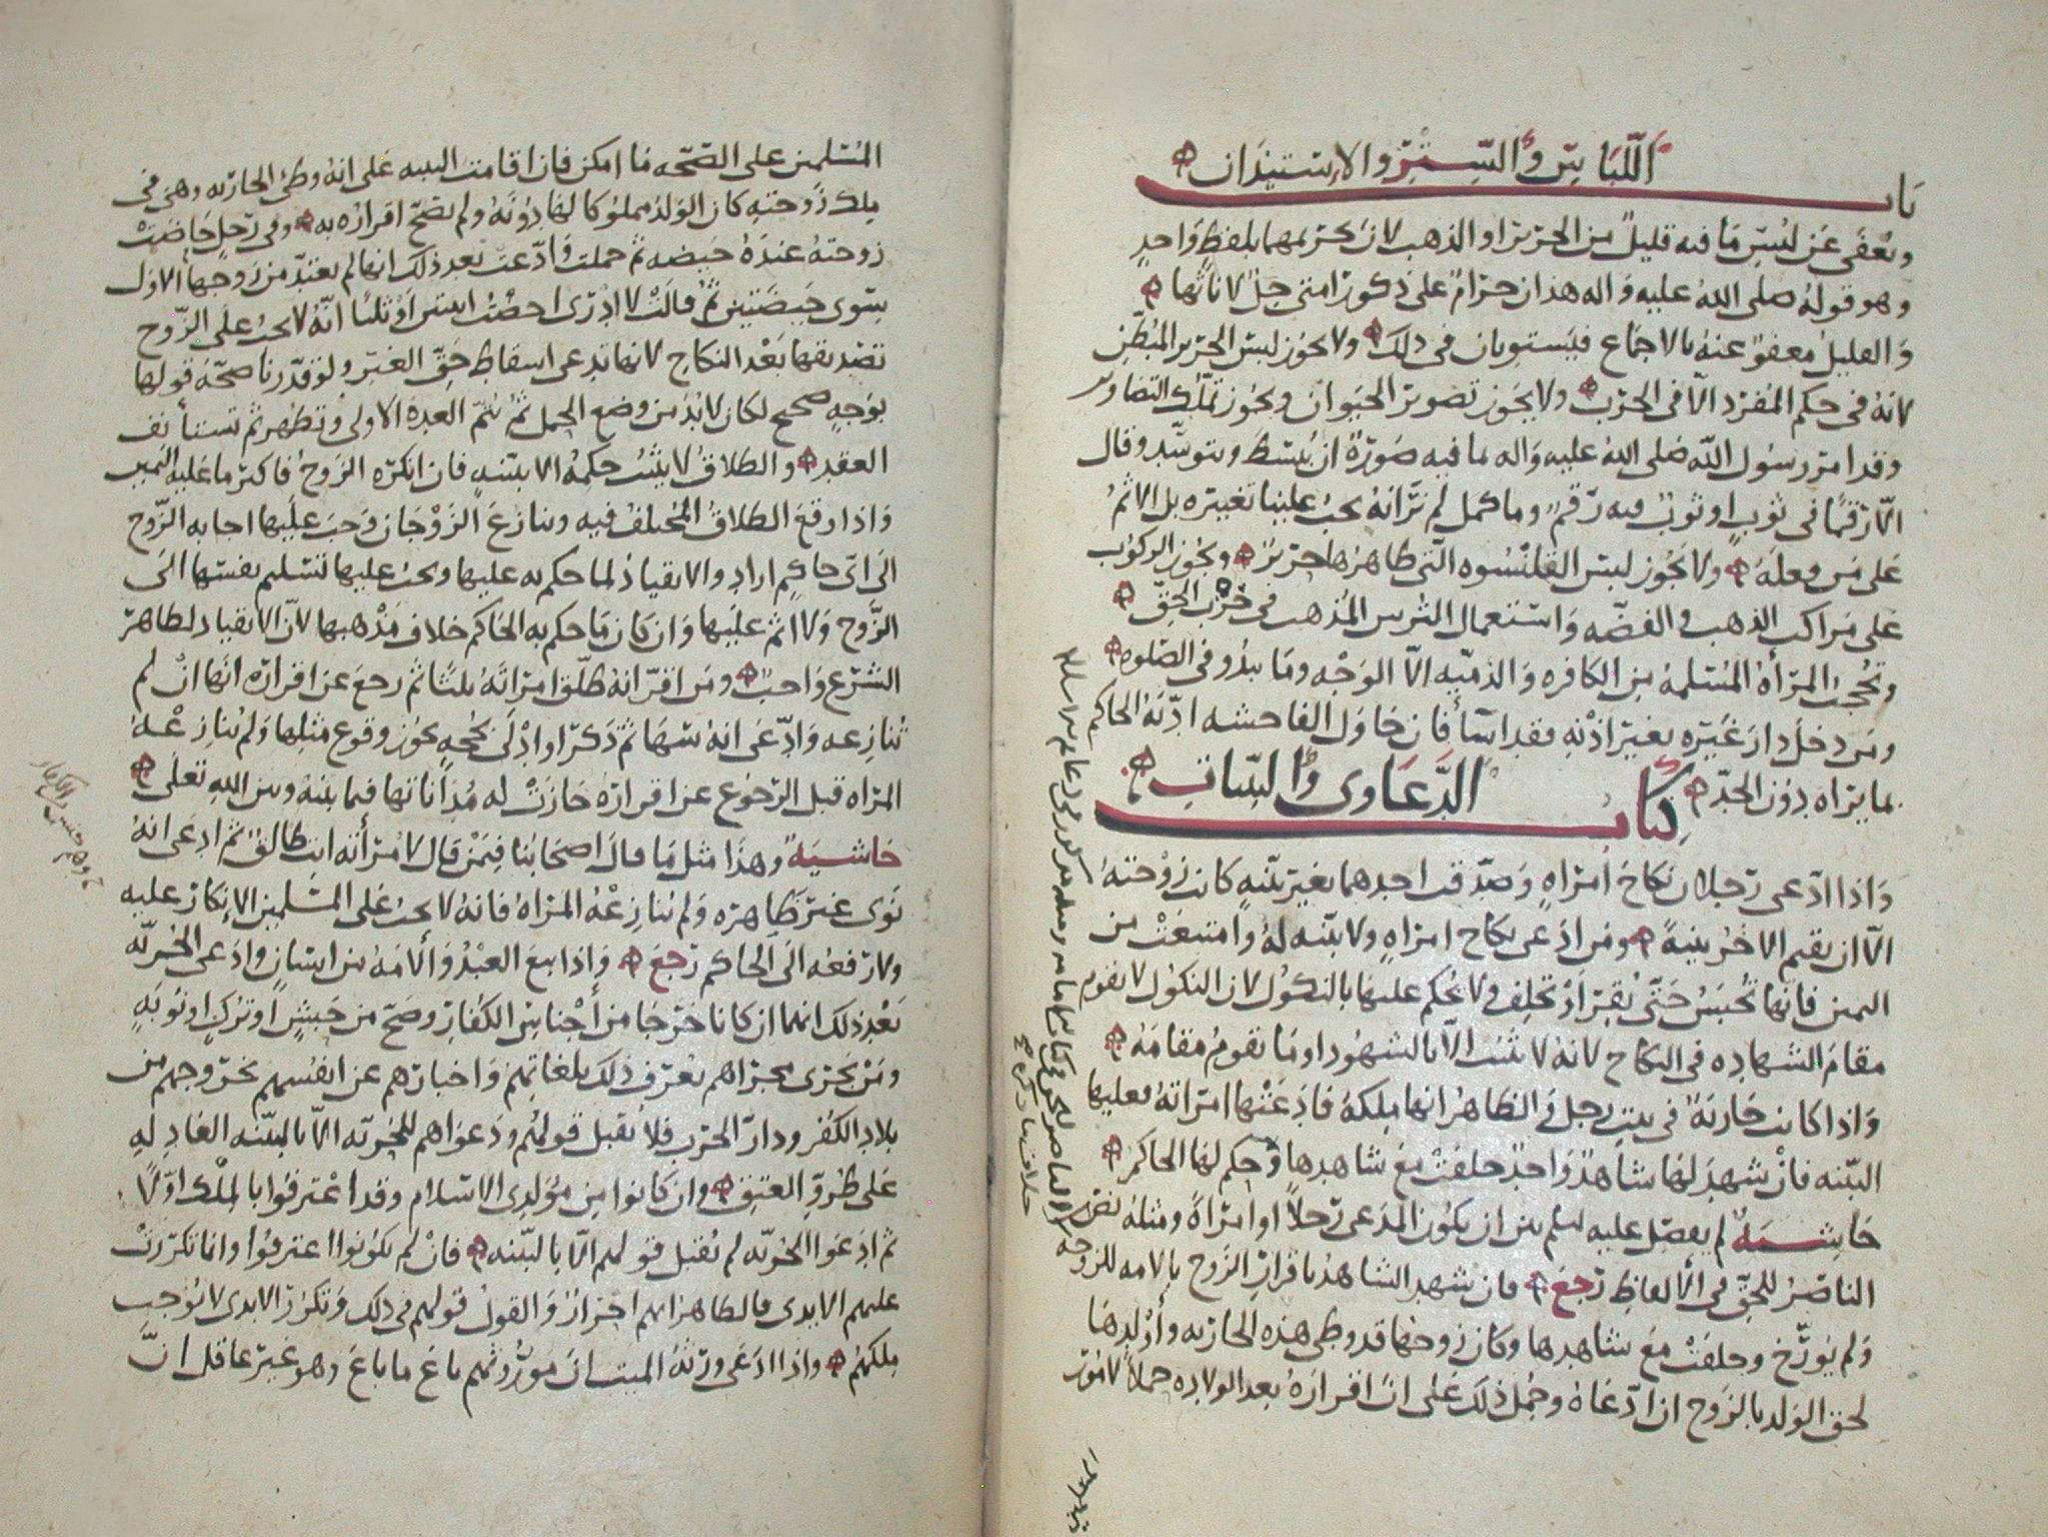 باب اللباس والستر والاستيذان
ويعفى عن لبس ما فيه قليل من الحرير او الذهب لان تحريمهما بلفظ واحد
وهو قوله صلى الله عليه واله هذان حرام على ذكور امتي حل لاناثها
والقليل معفو عنه بالاجماع فيستويان في ذلك ولا يجوز لبس الحرير المبطن
لانه في حكم المفرد الا في الحرب ولا يجوز تصوير الحيوان ويجوز تملك التصاوير
وقد امر رسول الله صلى الله عليه واله لما فيه صورة ان يبسط ويتوسد وقال
الا رقما في ثوب او ثوب فيه رقم وما كمل لم نر انه يجب علينا تغييره بل الاثم
على من فعله ولا يجوز لبس القلنسوه التي ظاهرها حرير ويجوز الركوب
على مراكب الذهب والفضه واستعمال الترس المذهب في حرب الحق
وتحجب المرأة المسلمة من الكافره والذميه الا الوجه وما يبدو في الصلوه
ومن دخل دار غيره بغير اذنه فقد اسا فان حاول الفاحشه ادبه الحاكم
بما يراه دون الحد كتاب الدعاوى والبينات
واذا ادعى رجلان نكاح امراه وصدقت احدهما بغير بينه كانت زوجته
الا ان يقيم الاخر بينة ومن ادعى نكاح امراه ولا بينه له وامتنعت من
اليمين فانها تحبس حتى تقر او تحلف ولا يحكم عليها بالنكول لان النكول لا يقوم
مقام الشهاده في النكاح لانه لا يثبت الا بالشهود او ما يقوم مقامه
واذا كانت جارية في بيت رجل والظاهر انها ملكه فادعتها امراته فعليها
البينه فان شهد لها شاهد واحد حلفت مع شاهدها وحكم لها الحاكم
حاشية لم يفصل عليه السلم بين ان يكون المدعي رجلا او امراة ومثله نص
الناصر للحق في الالفاظ رجع فان شهد الشاهد باقرار الزوج بالامه للزوجه
ولم يؤرخ وحلفت مع شاهدها وكان زوجها قد وطي هذه الجاريه واولدها
لحق الولد بالزوج ان ادعاه وحمل ذلك على ان اقراره بعد الولاده حملا لامور
المسلمين على الصحه ما امكن فان اقامت البينه على انه وطي الجاريه وهي في
ملك زوجته كان الولد مملوكا لها دونه ولم يصح اقراره به وفي رجل حاضت
زوجته عنده حيضه ثم حملت وادعت بعد ذلك انها لم تعتد من زوجها الاول
سوى حيضتين ثم قالت لا ادري احضت اثنتين او ثلثا انه لا يجب على الزوج
تصديقها بعد النكاح لانها تدعي اسقاط حق الغير ولو قدرنا صحة قولها
بوجه صحيح لكان لا بد من وضع الحمل ثم تتم العدة الاولى وتطهر ثم تستأنف
العقد والطلاق لا يثبت حكمه الا ببينه فان انكره الزوج فاكثر ما عليه اليمين
واذا وقع الطلاق المختلف فيه وتنازع الزوجان وجب عليها اجابه الزوج
الى اي حاكم اراد والانقياد لما حكم به عليها ويجب عليها تسليم نفسها الى
الزوج ولا اثم عليها وان كان ما حكم به الحاكم خلاف مذهبها لان الانقياد لظاهر
الشرع واجب ومن اقر انه طلق امراته ثلثا ثم رجع عن اقراره انها ان لم
تنازعه وادعى انه سها ثم ذكر او ادلى بحجه يجوز وقوع مثلها ولم تنازعه
المراه قبل الرجوع عن اقراره جازت له مداناتها فيما بينه وبين الله تعلى
حاشية وهذا مثل ما قال اصحابنا فيمن قال لامرأته انت طالق ثم ادعى انه
نوى غير ظاهره ولم تنازعه المراه فانه لا يجب على المسلمين الانكار عليه
ولا رفعه الى الحاكم رجع واذا بيع العبد والامه من انسان وادعى الحريه
بعد ذلك انهما ان كانا خرجا من اجناس الكفار وصح من حبش او ترك او نوبه
ومن يجري مجراهم يعرف ذلك بلغاتهم واخبارهم عن انفسهم بخروجهم من
بلاد الكفر ودار الحرب فلا يقبل قولهم ودعواهم للحريه الا بالبينه العادله
على طرو العتق وان كانوا من مولدي الاسلام وقد اعترفوا بالملك اولا
ثم ادعوا الحريه لم يقبل قولهم الا بالبينه فان لم يكونوا اعترفوا وانما تكررت
عليهم الايدي فالظاهر انهم احرار والقول قولهم في ذلك وتكرر الايدي لا يوجب
ملكهم واذا ادعى ورثة الميت ان مورثهم باع ما باع وهو غير عاقل ان